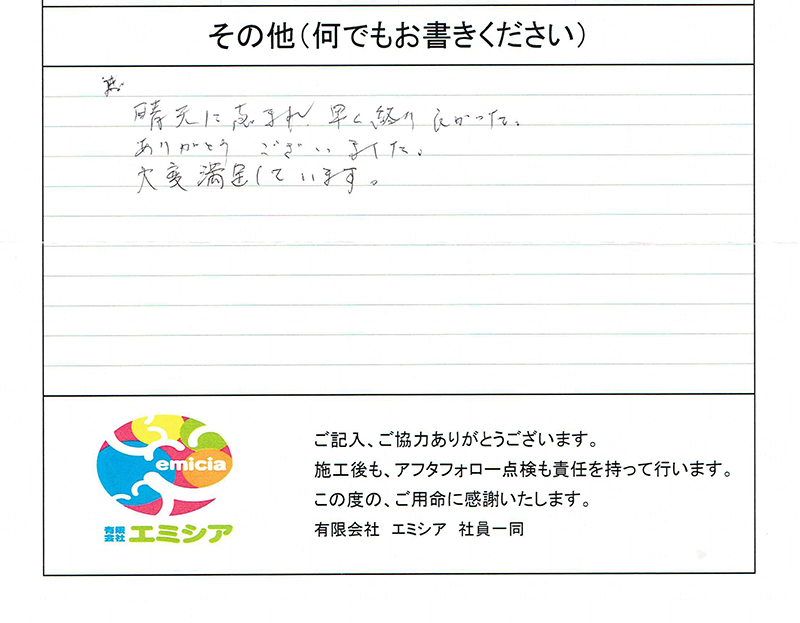 その他(何でもお書きください)
晴天に恵まれ 早く終り 良かった。
ありがとう ございました。
大変満足しています。
emicia
有限会社 エミシア
ご記入、ご協力ありがとうございます。
施工後も、アフタフォロー点検も責任を持って行います。
この度の、ご用命に感謝いたします。
有限会社 エミシア 社員一同